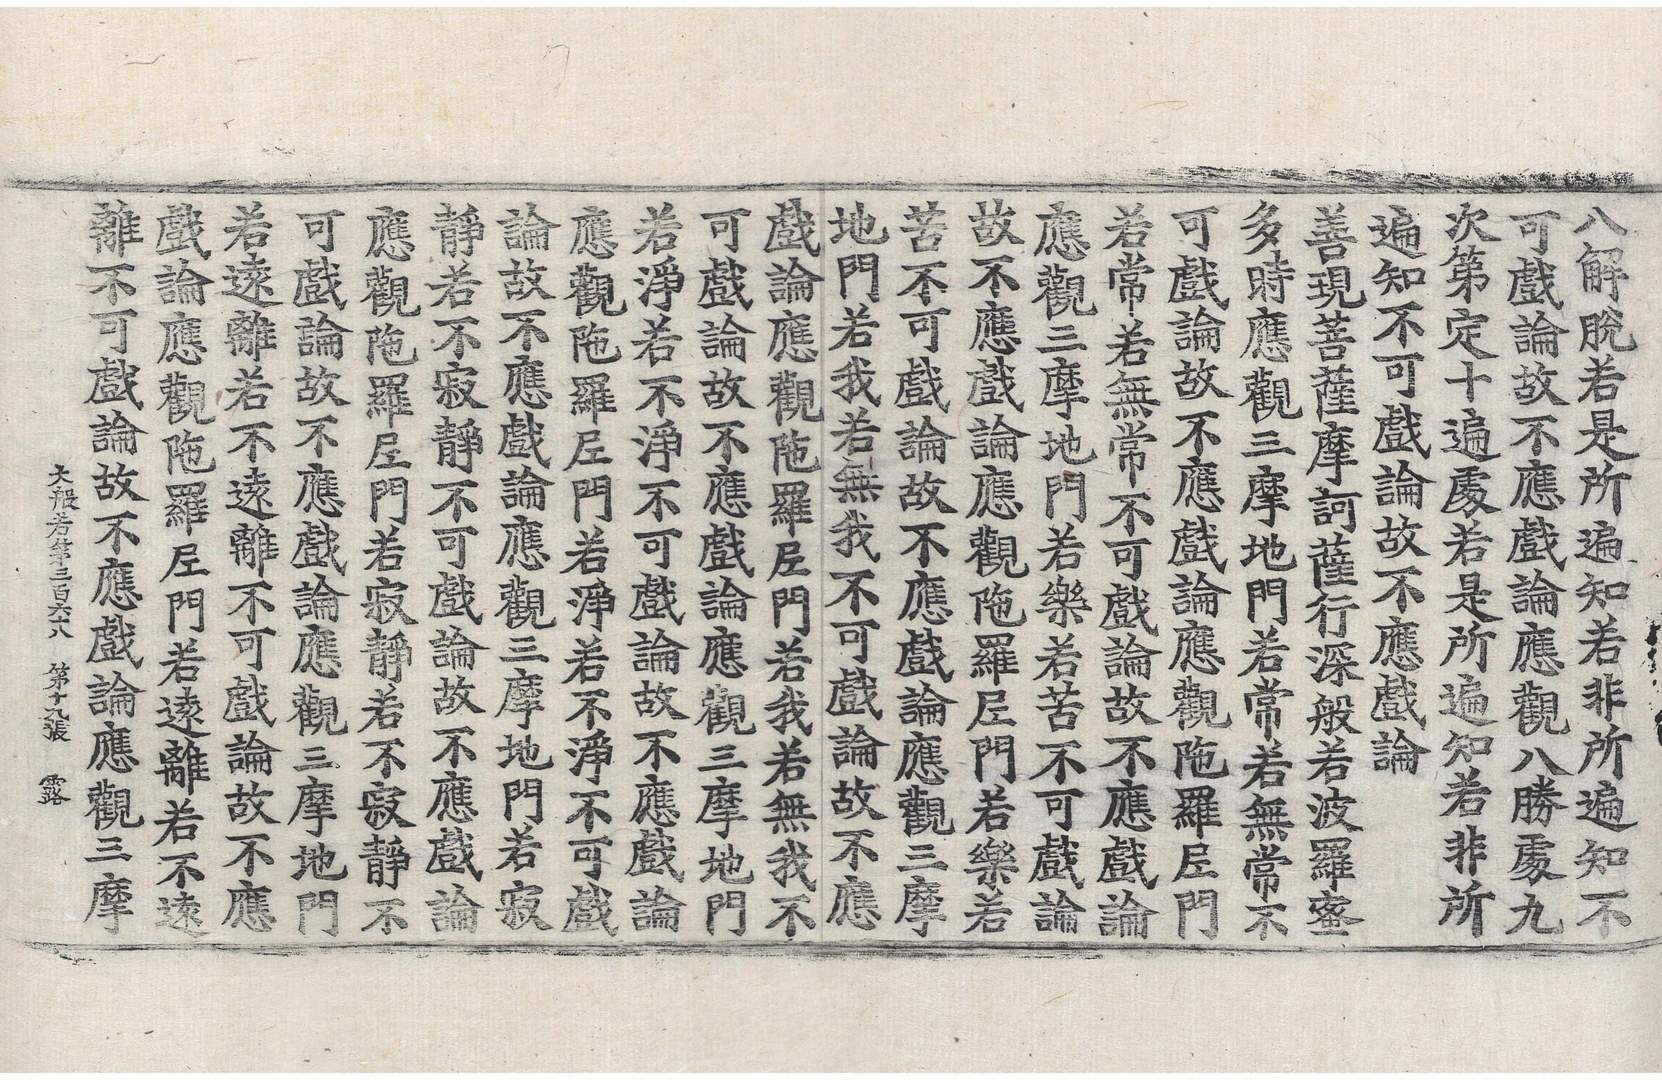 八解脫若是所遍知若非所遍知不
可戲論故不應戲論應觀八勝處九
次第定十遍處若是所遍知若非所
遍知不可戲論故不應戲論
善現菩薩摩訶薩行深般若波羅蜜
多時應觀三摩地門若常若無常不
可戲論故不應戲論應觀陁羅尼門
若常若無常不可戲論故不應戲論
應觀三摩地門若樂若苦不可戲論
故不應戲論應觀陁羅尼門若樂若
苦不可戲論故不應戲論應觀三摩
地門若我若無我不可戲論故不應
戲論應觀陁羅尼門若我若無我不
可戲論故不應戲論應觀三摩地門
若淨若不淨不可戲論故不應戲論
應觀陁羅尼門若淨若不淨不可戲
論故不應戲論應觀三摩地門若寂
靜若不寂靜不可戲論故不應戲論
應觀陁羅尼門若寂靜若不寂靜不
可戲論故不應戲論應觀三摩地門
若遠離若不遠離不可戲論故不應
戲論應觀陁羅尼門若遠離若不遠
離不可戲論故不應戲論應觀三摩
大般若第三百六十八 第十九張 露